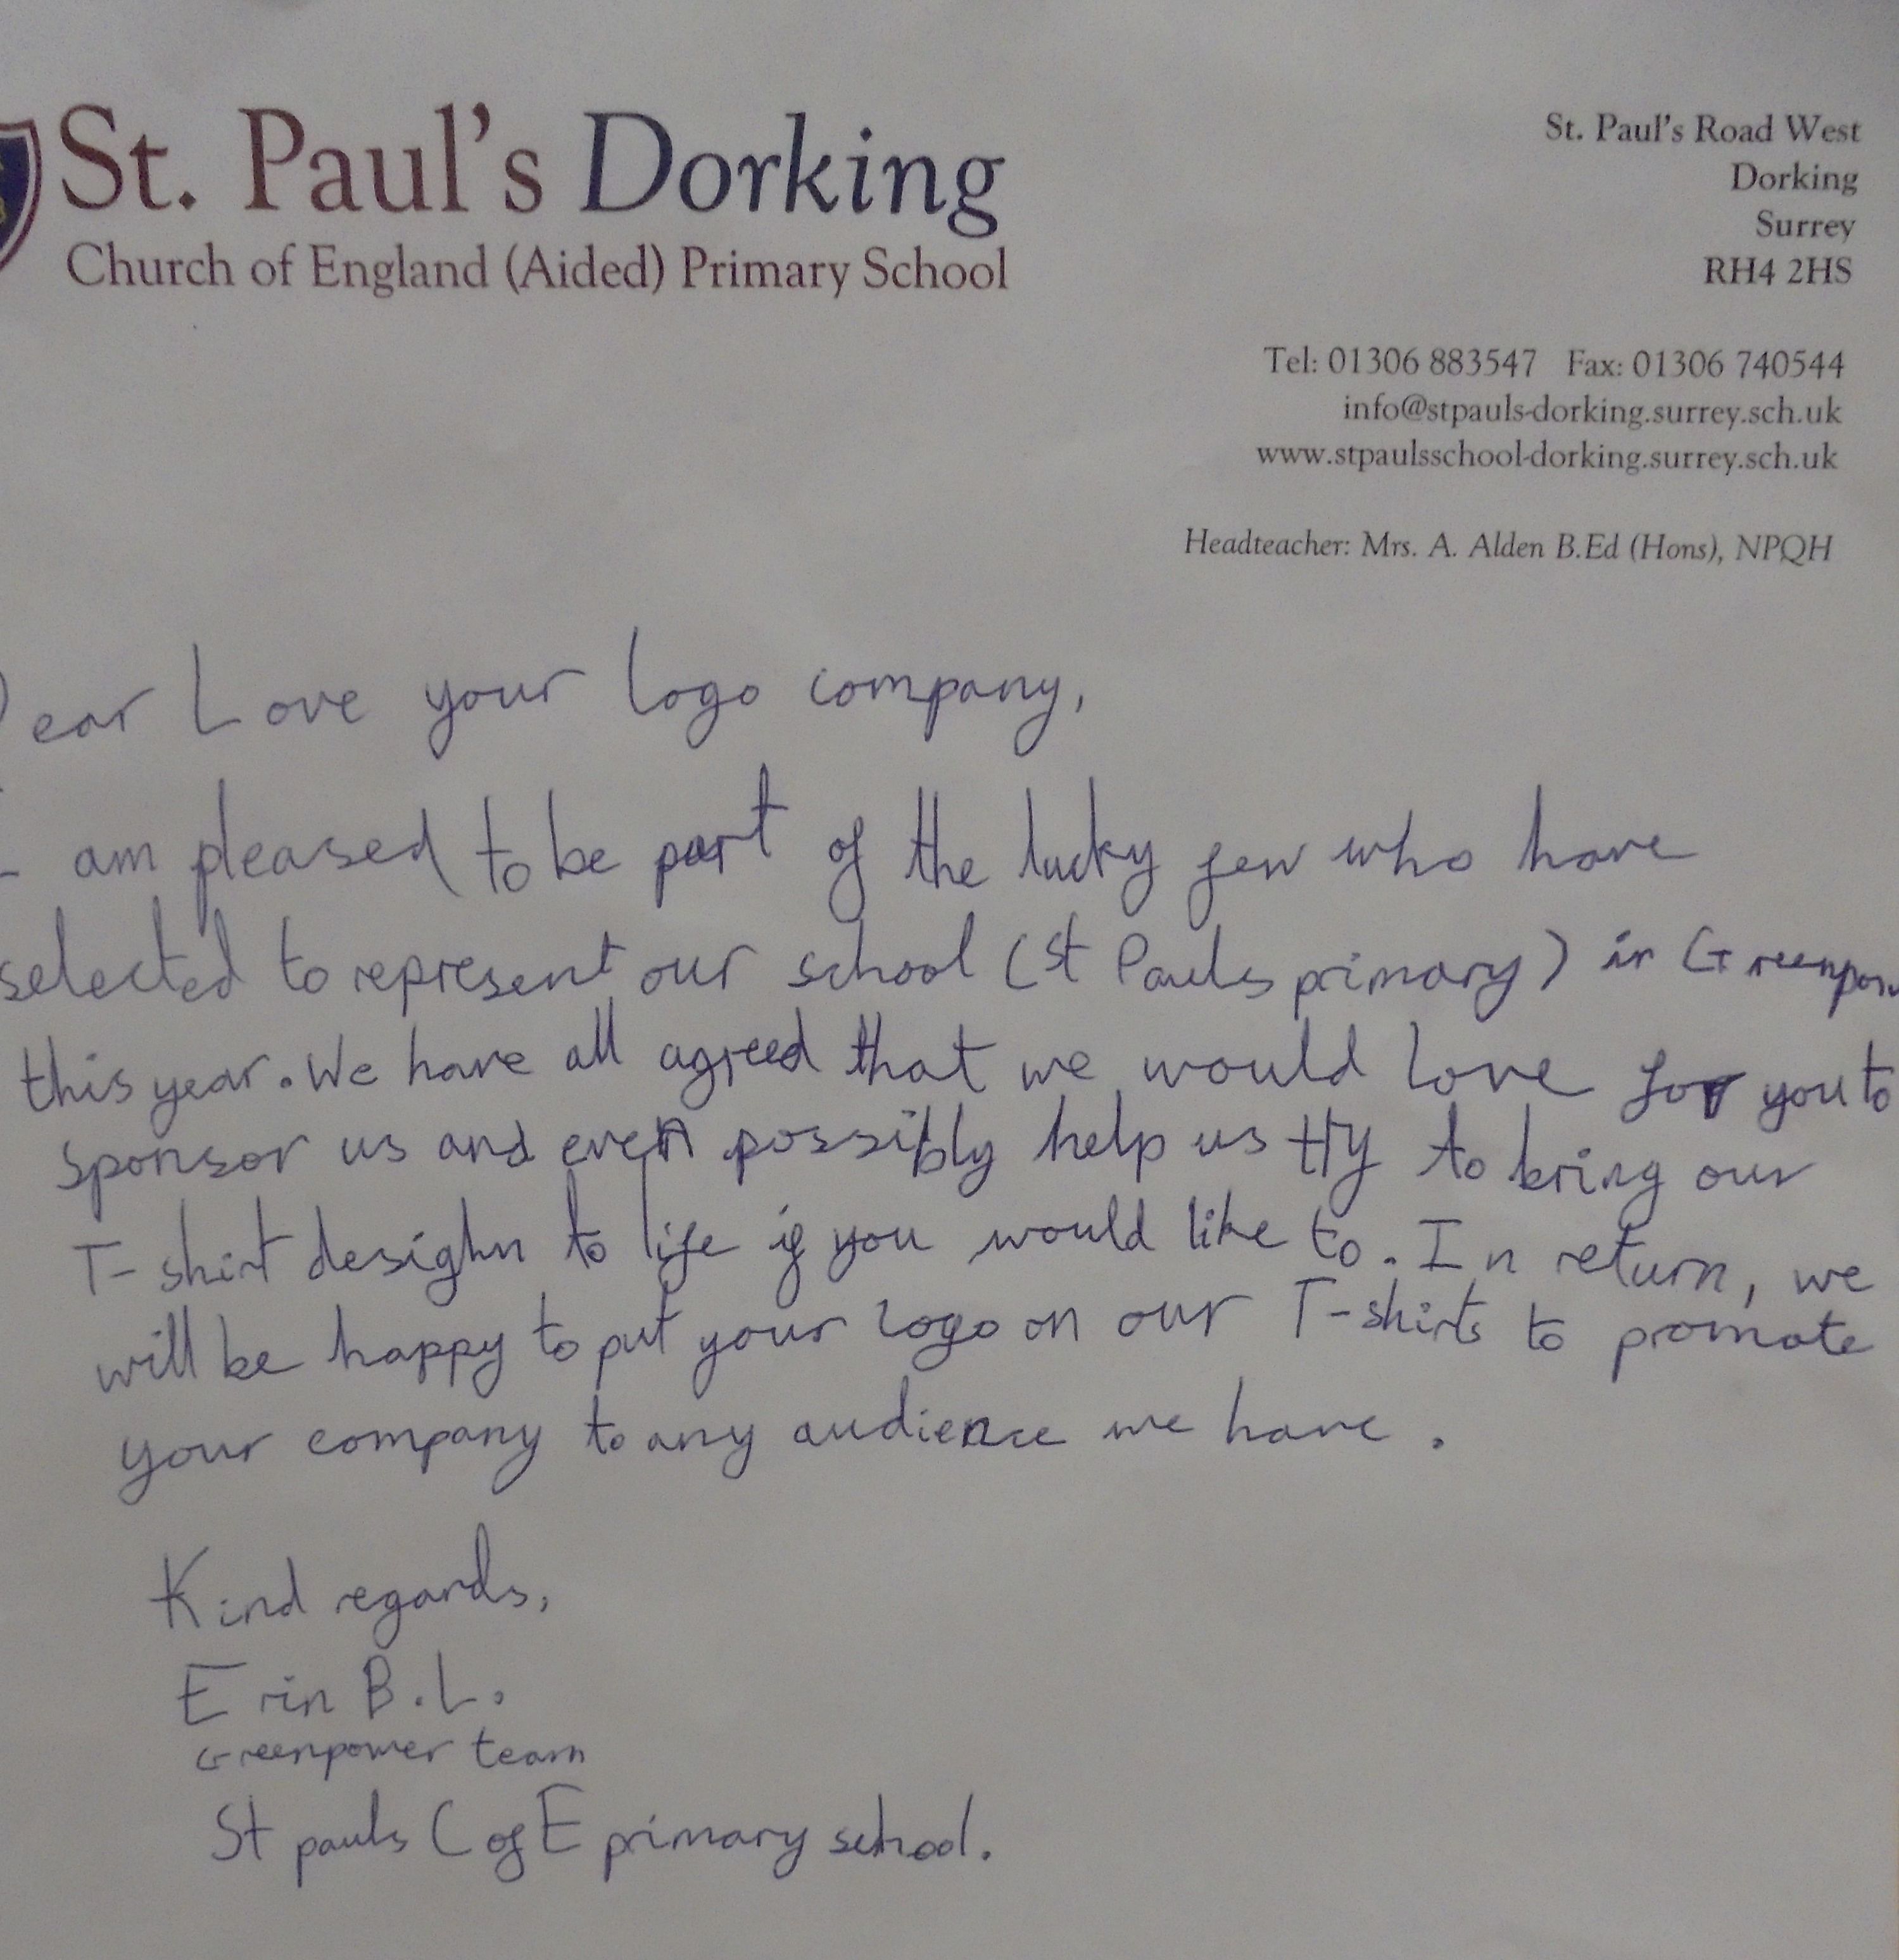 St. Paul's Dorking
Church of England (Aided) Primary School
St. Paul's Road West
Dorking
Surrey
RH4 2HS
Tel: 01306 883547 Fax: 01306 740544
info@stpauls-dorking.surrey.sch.uk
www.stpaulsschool-dorking.surrey.sch.uk
Headteacher: Mrs. A. Alden B.Ed (Hons), NPQH
Dear Love your logo company,
I am pleased to be part of the lucky few who have
selected to represent our school (St Pauls primary) in Greenpow
this year. We have all agreed that we would love for you to
sponsor us and even possibly help us try to bring our
T-shirt desighn to life if you would like to. In return, we
will be happy to put your logo on our T-shirts to promote
your company to any audience we have.
Kind regards,
Erin B.L.
Greenpower team
St pauls C of E primary school.